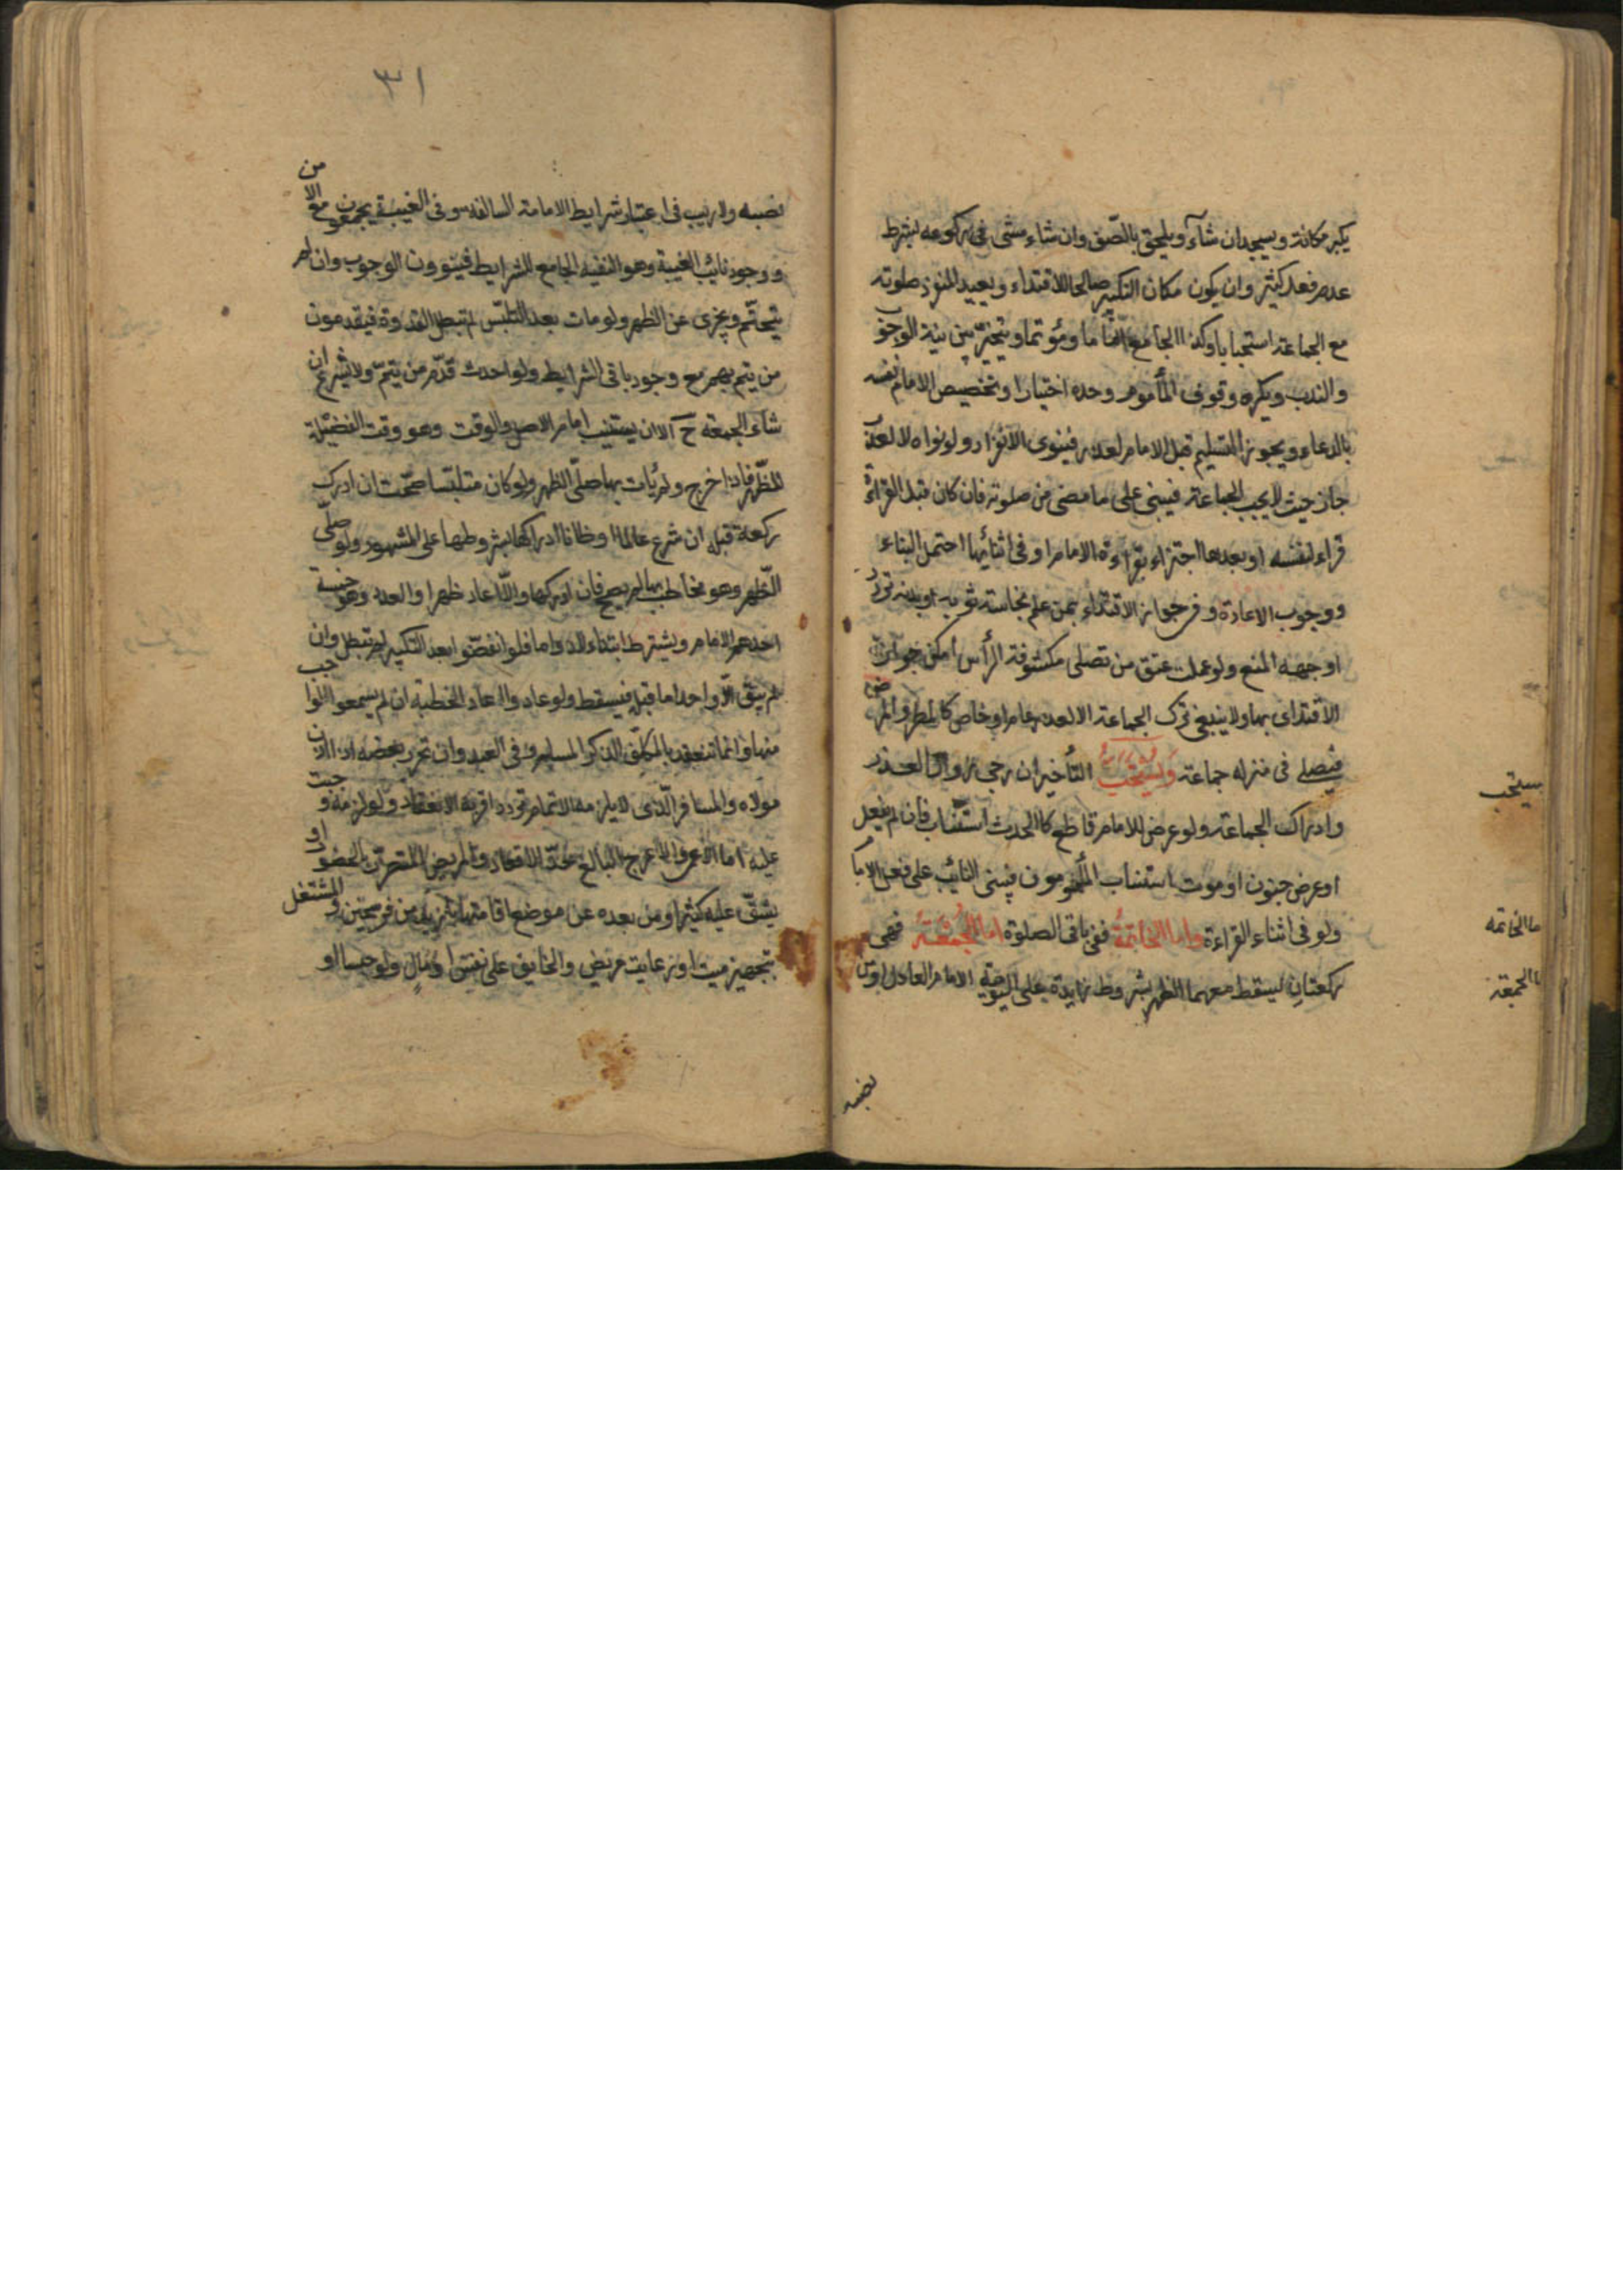 يكبر مكانه ويسجد ان شاء ويلحق بالصّف وان شاء مشى فى ركوعه بشرط
عدم فعل كثير وان يكون مكان التكبير صالحا للاقتداء ويعيد المنفرد صلوته
مع الجماعة استحبابا وكذا الجامع اماما ومؤتما ويتخير بين نية الوجوب
والندب ويكره وقوف المأموم وحده اختيارا وتخصيص الامام نفسه
بالدعاء ويجوز التسليم قبل الامام لعذر فينوى الانفراد ولو نواه لا لعذر
جاز حيث لا يجب الجماعة فيبنى على ما مضى من صلوته فان كان قبل القراءة
قراء لنفسه او بعدها اجتزاء بقراءة الامام او فى اثنائها احتمل البناء
ووجوب الاعادة و فى جواز الاقتداء بمن علم نجاسة ثوبه او بدنه تردد
اوجهه المنع ولو علمت عتق من تصلى مكشوفة الرأس امكن جواز
الاقتداى بها ولا ينبغى ترك الجماعة الا لعذر عام او خاص كالمطر والمرض
فيصلى فى منزله جماعة ويستحب التأخير ان رجى زوال العذر
يستحب
وادراك الجماعة ولو عرض للامام قاطع كالحدث استناب فان لم يفعل
او عرض جنون او موت استناب المأمومون فيبنى النائب على فعل الامام
ولو فى اثناء القراءة واما الخاتمة ففى باقى الصلوة اما الجمعة فهى
ما الخاتمة
ركعتان يسقط معهما الظهر بشروط زايدة على اليومية الامام العادل او من
ما الجمعة
نصبه
٣١
نصبه ولا ريب فى اعتبار شرايط الامامة السالفة وفى الغيبة يجمعون مع الامن
ووجود نائب الغيبة وهو الفقيه الجامع الشرايط فينوون الوجوب وان لم
يتحتّم ويجزى عن الظهر ولو مات بعد التلبّس لم تبطل القدوة فيقدمون
من يتم بهم مع وجود باقى الشرايط ولو احدث قدّم من يتمّ ولا يشرع ان
شاء الجمعة ح الا ان يستنيب امام الاصل والوقت وهو وقت الفضيلة
للظهر فاذا خرج ولم يأت بها صلّى الظهر ولو كان متلبّسا صحّت ان ادرك
ركعة قبله ان شرع عالما او ظانا ادراكها بشروطها على المشهور ولو صلّى
الظهر وهو مخاطب بها لم يصح فان ادركها والّا اعاد ظهرا والعدد وهو خمسة
احدهم الامام ويشترط ابتداء لا دواما فلو انفضّوا بعد التكبير لم تبطل وان
لم يبق الّا واحد اما قبله فيسقط ولو عادوا اعاد الخطبة ان لم يسمعوا الواجب
منها وانما تنعقد بالمكلّف الذكر المسلم وفى العبد وان تحرر بعضه اذا اذن
مولاه والمسافر الّذى لا يلزمه الاتمام تردد اقربه الانعقاد ولو لزمه وجبت
عليه اما الاعمى والاعرج البالغ حدّ الاقعاد والمريض المتضرّر بالحضور او
يشقّ عليه كثيرا ومن بعده عن موضع اقامتها بازيد من فرسخين والمشتغل
بتجهيز ميت او رعايت مريض والخايف على نفس او مال ولو حبسا او